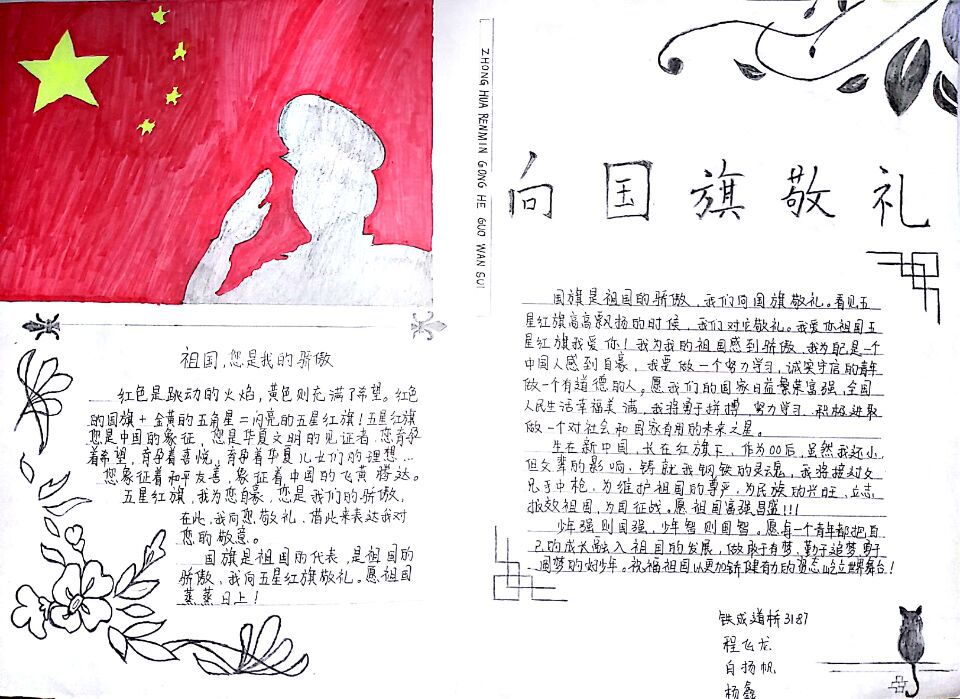 祖国,您是我的骄傲
红色是跳动的火焰,黄色则充满了希望。红色
的国旗+金黄的五角星=闪亮的五星红旗!五星红旗
您是中国的象征,您是华夏文明的见证者,您育孕
着希望,育孕着喜悦,育孕着华夏儿女们的理想…
您象征着和平友善,象征着中国的飞黄腾达。
五星红旗,我为您自豪,您是我们的骄傲,
在此,我向您敬礼,借此来表达我对
您的敬意。
国旗是祖国的代表,是祖国的
骄傲,我向五星红旗敬礼。愿祖国
蒸蒸日上!
ZHONG HUA RENMIN GONG HE GUO WAN SUI
向国旗敬礼
国旗是祖国的骄傲,我们向国旗敬礼。看见五
星红旗高高飘扬的时候,我们对它敬礼。我爱你祖国五
星红旗我爱你!我为我的祖国感到骄傲,我为自己是一个
中国人感到自豪,我要做一个努力学习,诚实守信的青年
做一个有道德的人。愿我们的国家日益繁荣富强,全国
人民生活幸福美满,我将勇于拼搏,努力学习,积极进取
做一个对社会和国家有用的未来之星。
生在新中国,长在红旗下,作为00后,虽然我还小,
但父辈的影响,铸就我钢铁的灵魂,我将接过父
兄手中枪,为维护祖国的尊严,为民族的兴旺,立志
报效祖国,为国征战。愿祖国富强昌盛!!!
少年强则国强,少年智则国智。愿每一个青年都把自
己的成长融入祖国的发展,做敢于有梦、勤于追梦、勇于
圆梦的好少年。祝福祖国以更加矫健有力的姿态屹立世界舞台!
铁成道桥3187
程飞龙
白扬帆
杨鑫